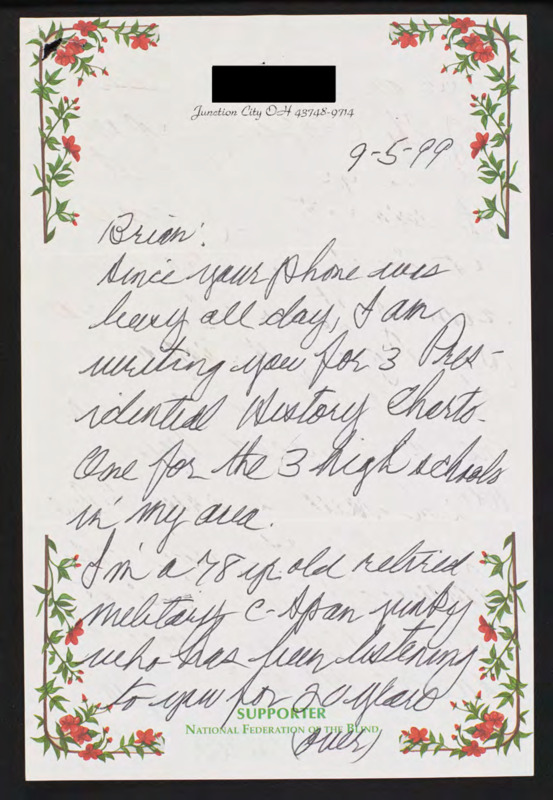 Junction City OH 43748-9714
9-5-99
Brian:
Since your phone was
busy all day, I am
writing you for 3 Pres-
idential History Charts.
One for the 3 high schools
in my area.
I'm a 78 yr. old retired
military C-Span junky
who has been listening
to you for 20 years
SUPPORTER
NATIONAL FEDERATION OF THE BLIND
(over)